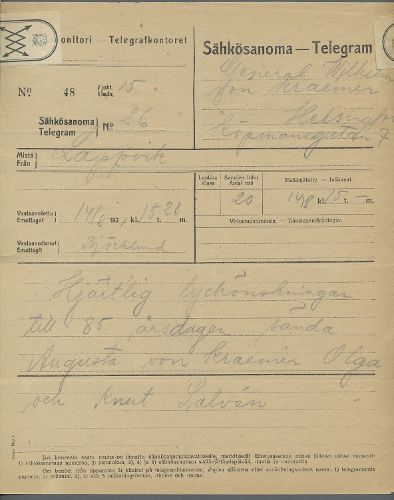 onttori / Telegrafkontoret
Sähkösanoma — Telegram
General Wilhelm
von Kraemer
Helsingfo
Köpmansgatan 7
№ 48 15
Sähkösanoma
Telegram № 26
Mistä
Från Lappvik
Luokka
Klass
Sanojen luku
Antal ord
Sisäänjätetty. — Inlämnat.
20 14/8 kl. 15 t. — m.
Vastaanotettu
Emottaget 14/8 192 kl. 15 20 m
Virkamuistutuksia. — Tjänsteanmärkningar.
Vastaanottanut
Emottagit Björklund
Hjärtlig lyckönskningar
till 85 årsdagen sända
Augusta von Kraemer Olga
och Knut Salvén